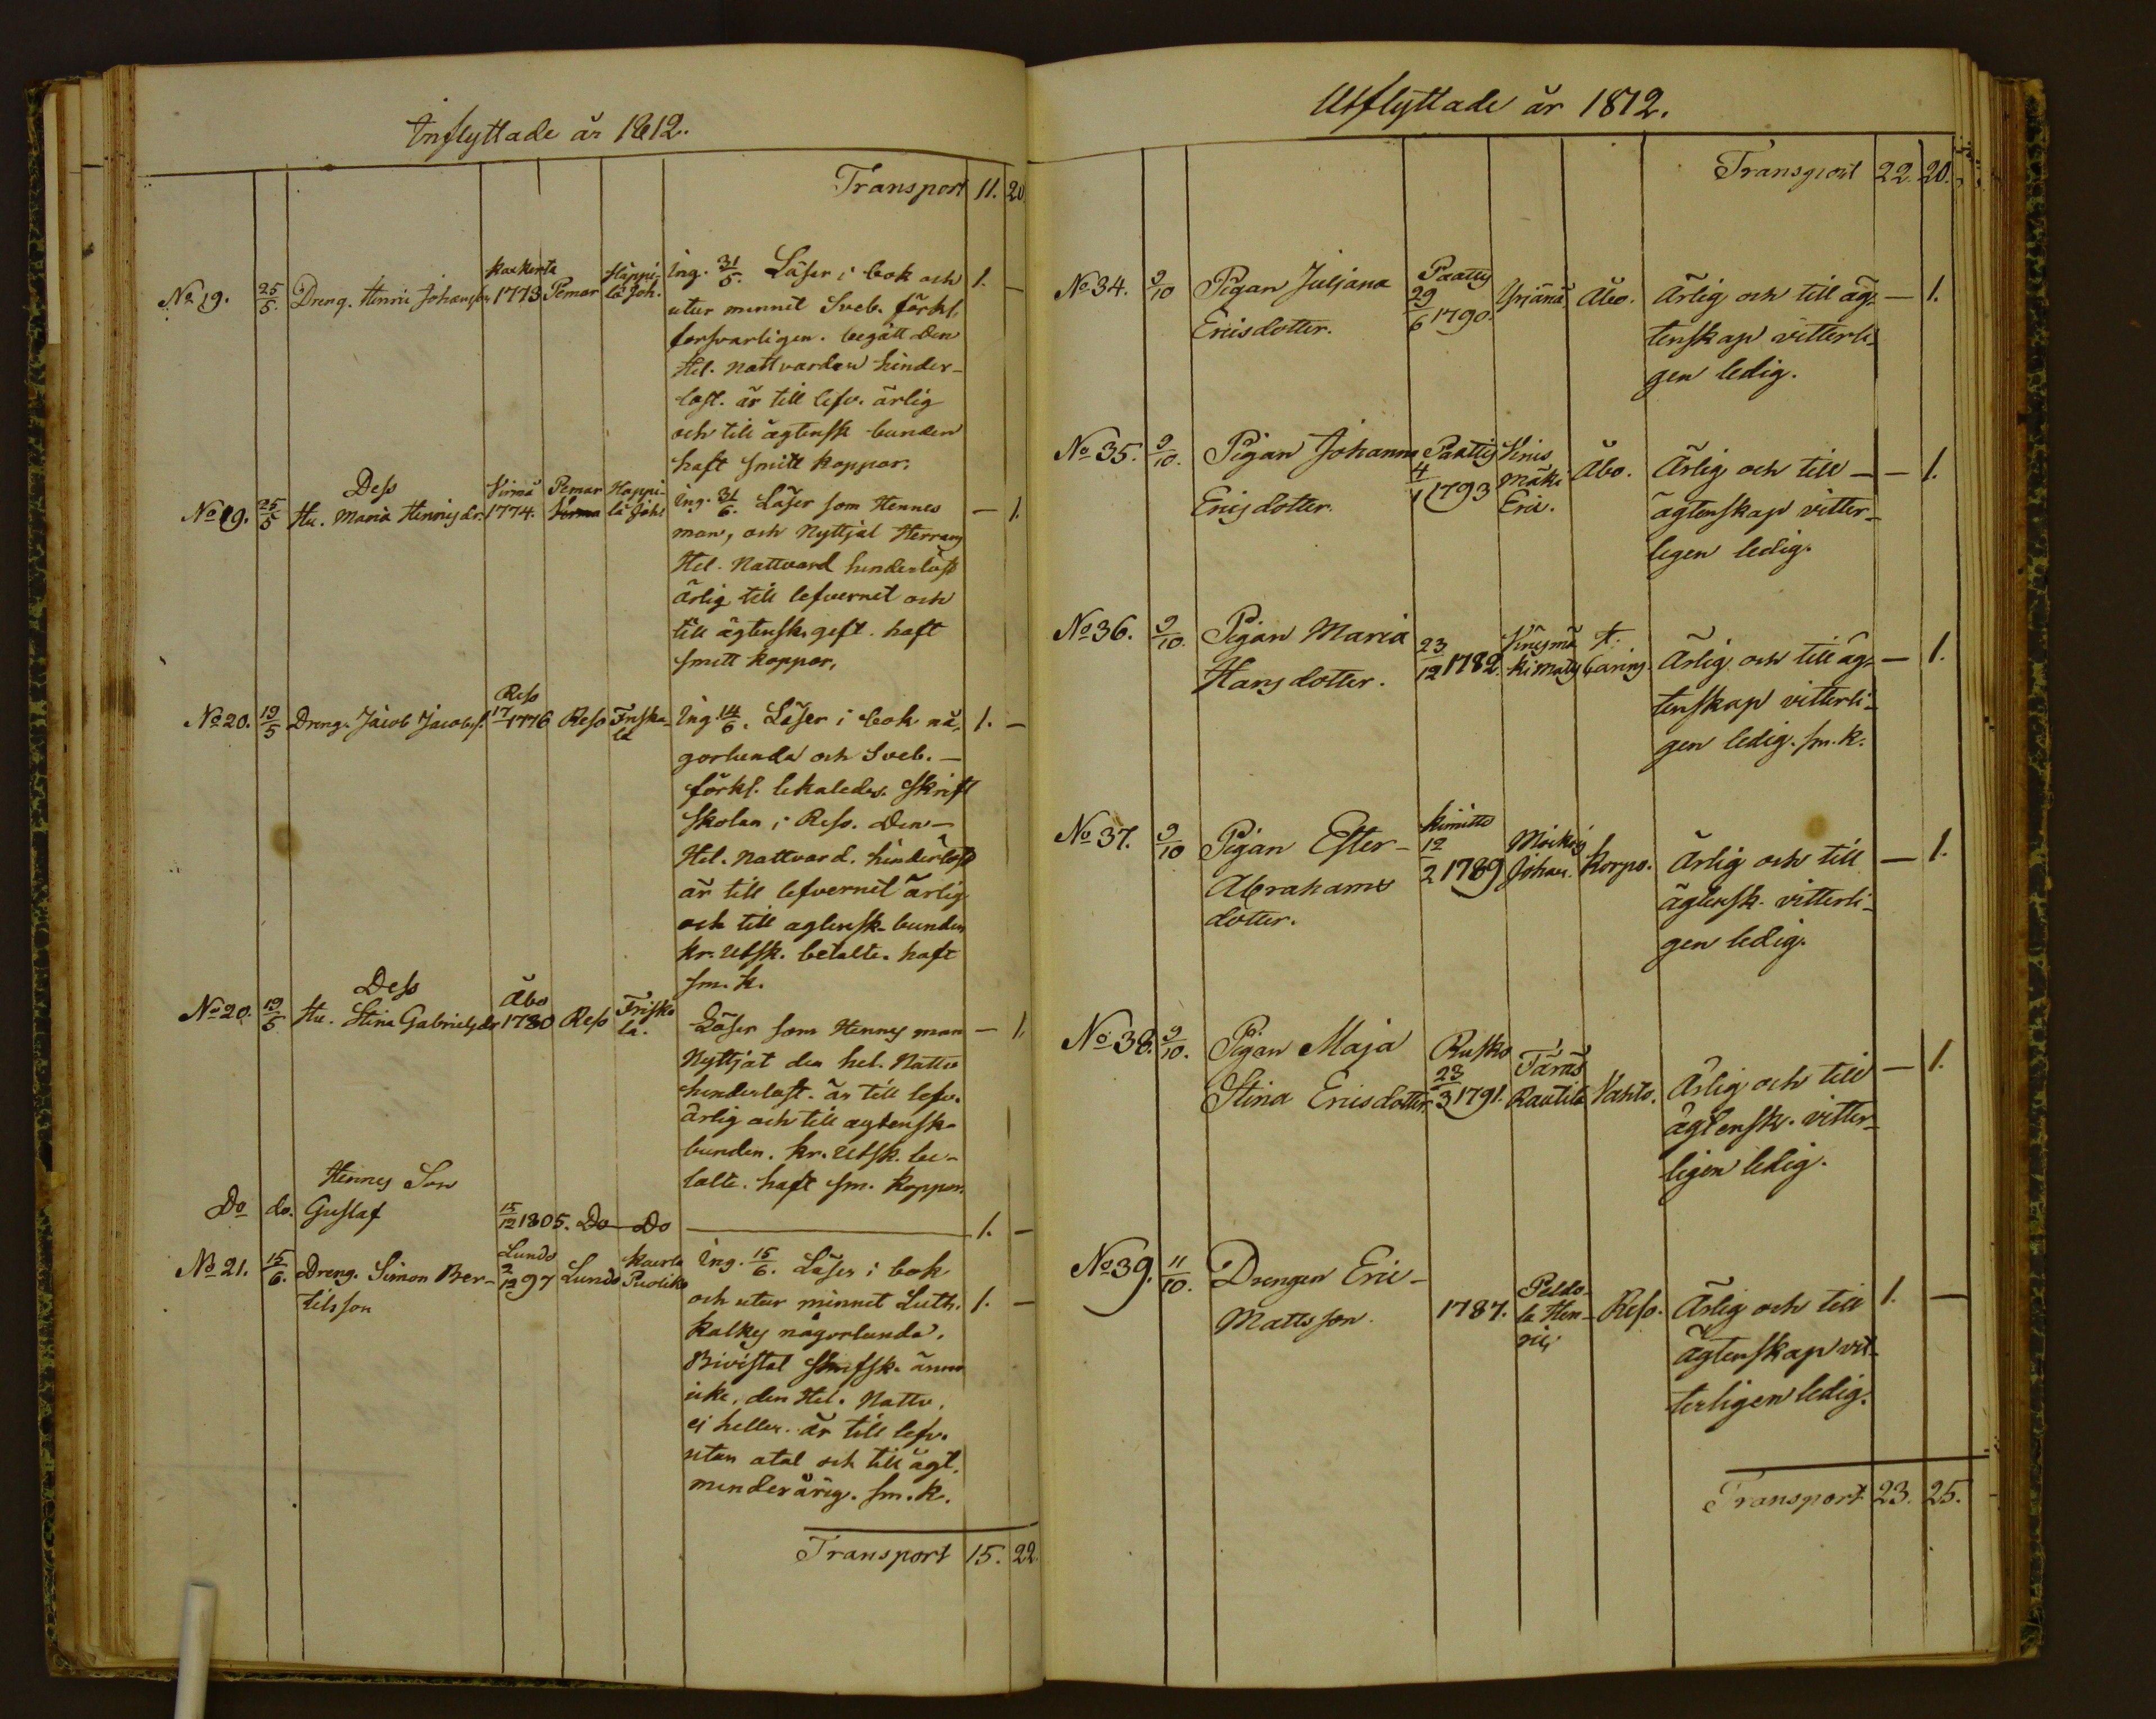 Inflyttade år 1812.
Transport 11. 20.
No 19. 25/5. Dreng. Henric Johansson Kackerta 1773 Pemar Häppi-
lä Joh. ing. 31/5. Läser i bok och 1. —
utur minnet Sveb. förkl.
forsvarligen. begått den
Hel. Nattvarden hinder-
löst. är till lefv. ärlig
och till ägtensk bunden
haft smitt koppor.
Dess
No 19. 25/5 Hu. Maria Henrisdr. Virmå 1774. Pemar Häppi-
lä Joh. ing. 31/6. Läser som Hennes — 1.
man, och Nyttjat Herrans
Hel. Nattvard hinderlöst
ärlig till lefvernet och
till ägtensk. gift. haft
smitt koppor.
No 20. 19/5 Dreng. Jacob Jacobss. Reso 17/ 1776 Reso Friska-
la ing. 14/6. Läser i bok nå- 1. —
gorlunda och Sveb. —
förkl. likaledes. Skrift
skolan i Reso. Den —
Hel. Nattvard. hinderlöst
är till lefvernet ärlig
och till agtensk. bunden
kr. Utsk. betalte. haft
sm. k.
Dess
No 20. 19/5. Hu. Stina Gabrielsdr Åbo 1780 Reso Frisko
la. Läser som Hennes man — 1.
Nyttjat den hel. Nattv
hinderlöst. är till lefv.
ärlig och till agtensk-
bunden. kr. Utsk. be-
talte. haft sm. koppor.
Hennes Son
Do do. Gustaf 15/12 1805. Do Do — 1. —
No 21. 15/6. Dreng. Simon Ber- Lundo 2/12 97 Lundo Kaerla
Puoliko ing. 15/6. Läser i bok
tilsson
och utur minnet Luth. 1. —
kalkes någorlunda.
Bivistat skrifsk. ännu
icke, den Hel. Nattv.
ej heller. är till lefv.
utan atal och till ägt.
minderårig. sm. k.
Transport 15. 22.
Utflyttade år 1812.
Transport 22. 20.
No 34. 9/10 Pigan Juljana Paattis 29/6 1790. Yrjänä Åbo. Ärlig och till äg- — 1.
Ericsdotter. tenskap vitterli-
gen ledig.
No 35. 9/10. Pigan Johanna Paattis 4/1 1793 Kinis
mäki
Eric. Åbo. Ärlig och till — — 1.
Ericsdotter. ägtenskap vitter-
ligen ledig.
No 36. 9/10. Pigan Maria 23/12 1782. Kinismä
ki Mats St.
Carins Ärlig och till äg- — 1.
Hansdotter. tenskap vitterli-
gen ledig. sm. k.
No 37. 9/10 Pigan Ester- Kimitto 12/2 1789 Moikois
Johan. Korpo. Ärlig och till — 1.
Abrahams ägtensk. vitterli-
dotter. gen ledig.
No 38. 9/10. Pigan Maja Rusko 23/3 1791. Täräs
Rautila Vahto. Ärlig och till — 1.
Stina Ericsdotter. ägtensk. vitter-
ligen ledig.
No 39. 11/10. Drengen Eric- 1787. Peldo-
la Hen-
ric Reso. Ärlig och till 1. —
Mattsson. ägtenskap vit-
terligen ledig.
Transport 23. 25.